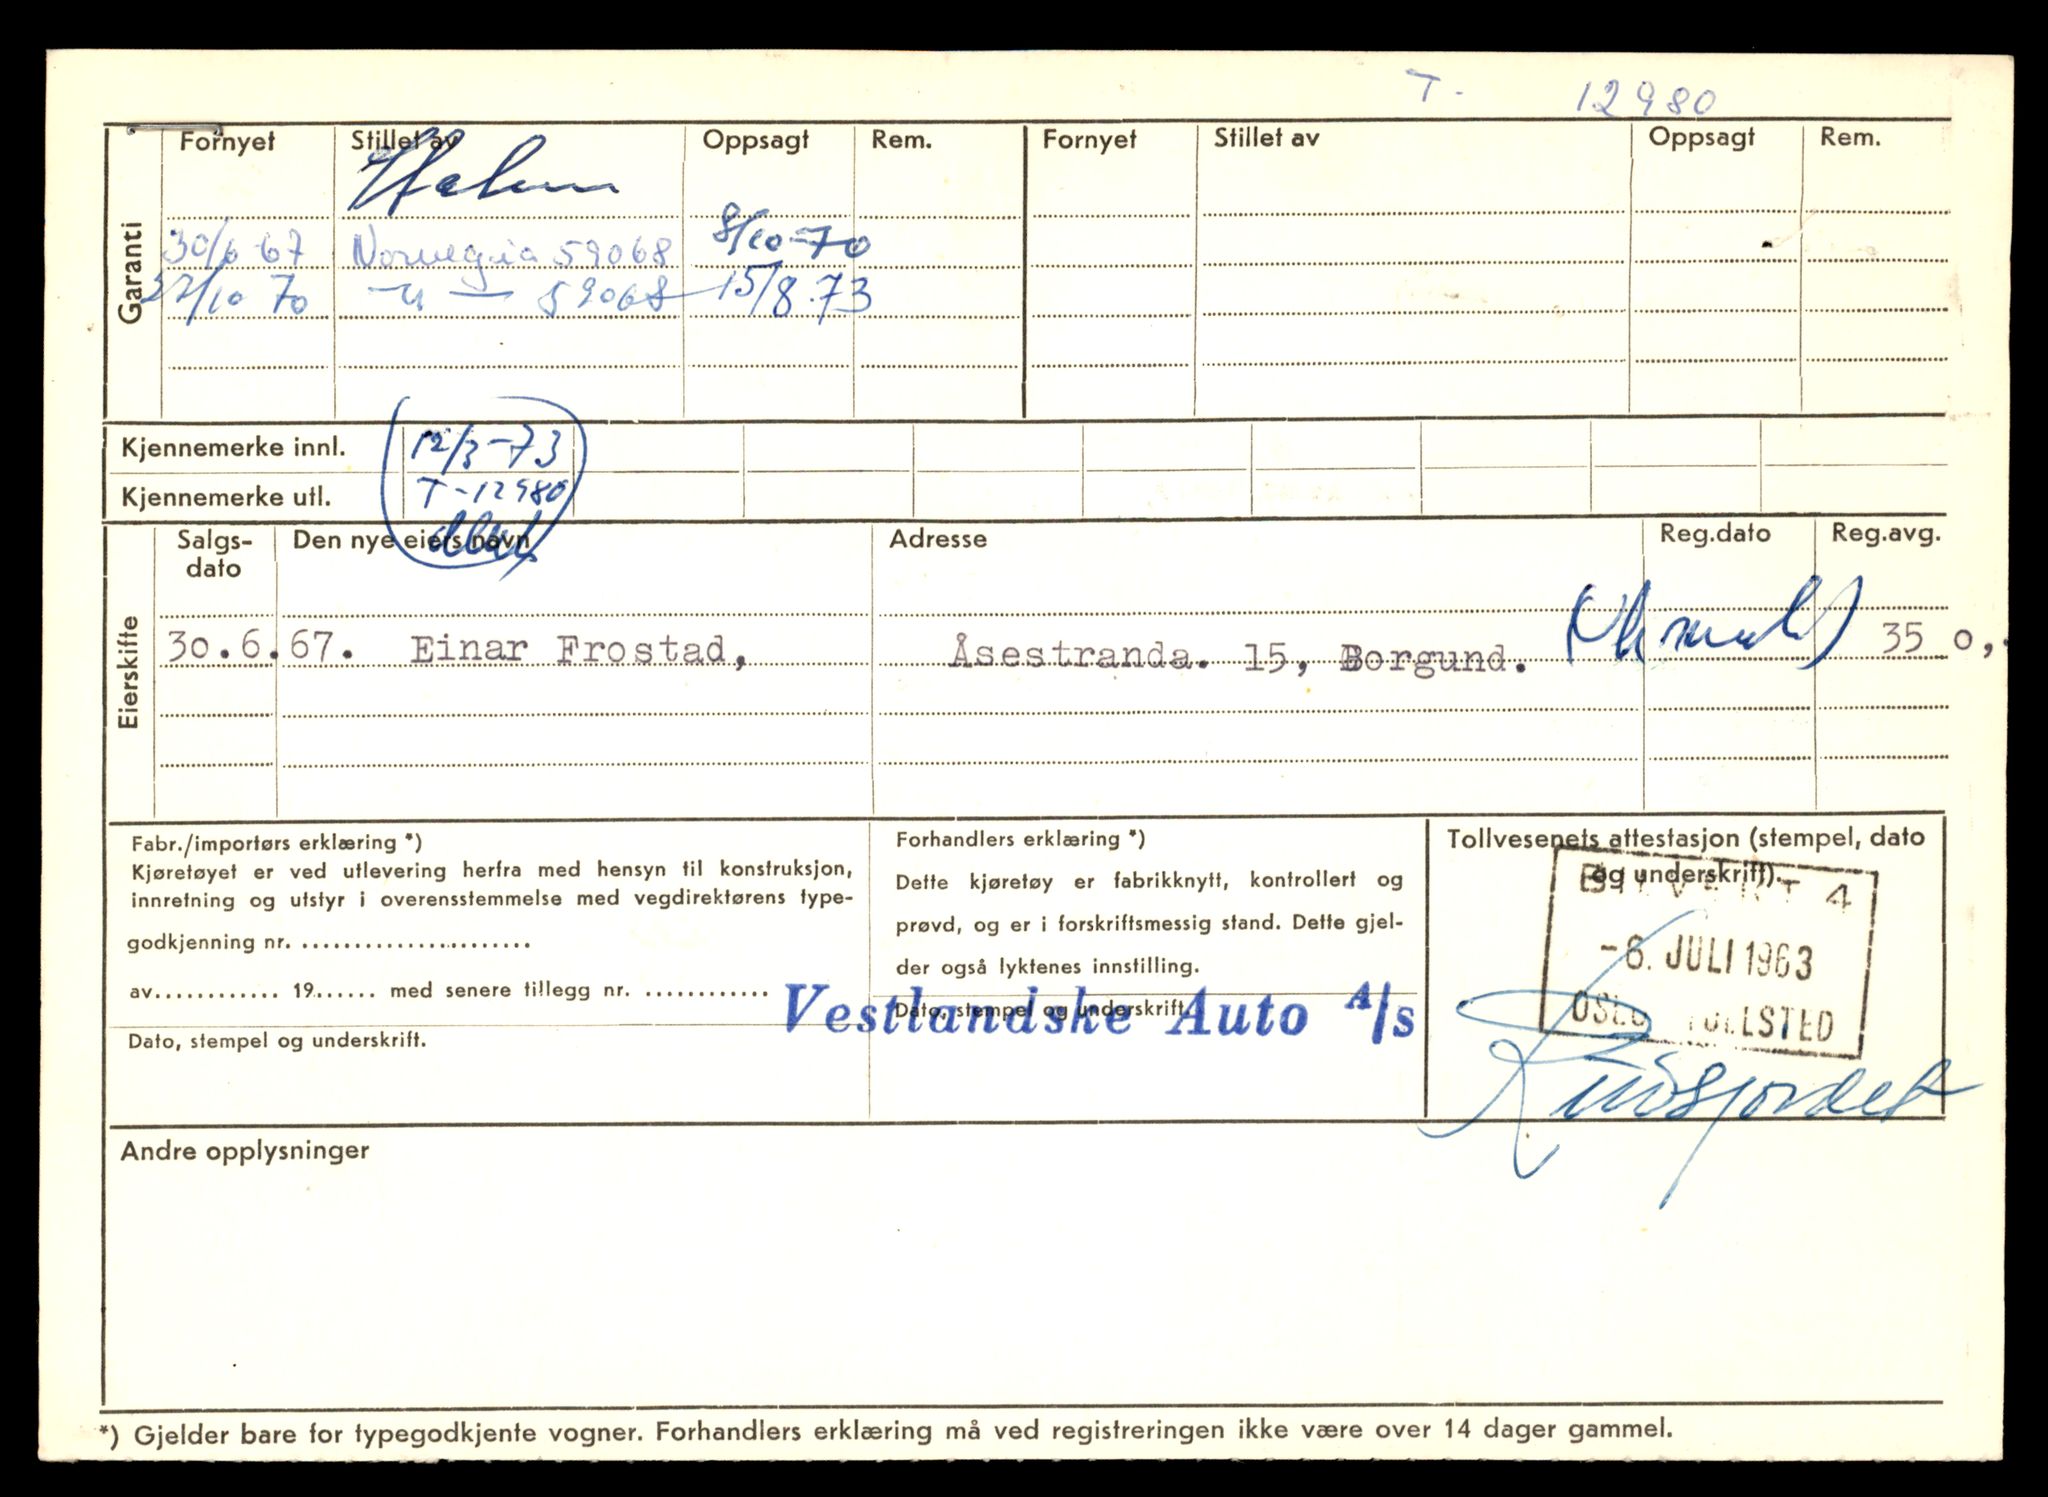 T- 12980
Fornyet Stillet av Oppsagt Rem. Fornyet Stillet av Oppsagt Rem.
Garanti
30/6 67 Norwegia 59068 8/10-70
27/10 70 -"- 59068 15/8.73
Kjennemerke innl. 12/3-73
Kjennemerke utl. T-12980
Eierskifte
Salgs-dato Den nye eiers navn Adresse Reg.dato Reg.avg.
30.6.67. Einar Frostad, Åsestranda. 15, Borgund. 35 0,-
Fabr./importørs erklæring *)
Kjøretøyet er ved utlevering herfra med hensyn til konstruksjon,
innretning og utstyr i overensstemmelse med vegdirektørens type-
godkjenning nr. ......................
av............ 19...... med senere tillegg nr. ............
Dato, stempel og underskrift.
Forhandlers erklæring *)
Dette kjøretøy er fabrikknytt, kontrollert og
prøvd, og er i forskriftsmessig stand. Dette gjel-
der også lyktenes innstilling.
Dato, stempel og underskrift.
Vestlandske Auto A/s
Tollvesenets attestasjon (stempel, dato
og underskrift).
4
-6. JULI 1963
OSLO TOLLSTED
Andre opplysninger
*) Gjelder bare for typegodkjente vogner. Forhandlers erklæring må ved registreringen ikke være over 14 dager gammel.